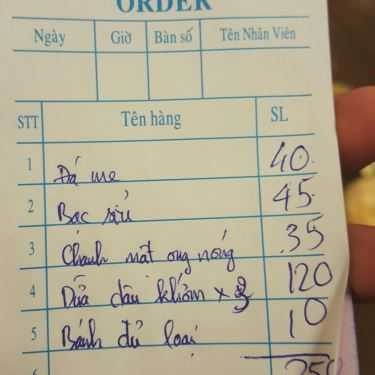 ORDER
Ngày Giờ Bàn số Tên Nhân Viên
STT Tên hàng SL
1 Đá me 40
2 Bạc sỉu 45
3 Chanh mật ong nóng 35
4 Dừa dâu khóm x 3 120
5 Bánh đủ loại 10
6 250